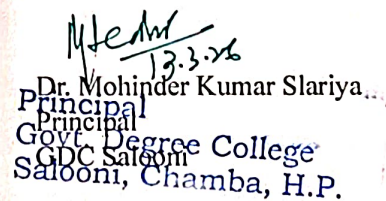 13.3.26
Dr. Mohinder Kumar Slariya
Principal
Principal
Govt. Degree College
GDC Salooni
Salooni, Chamba, H.P.